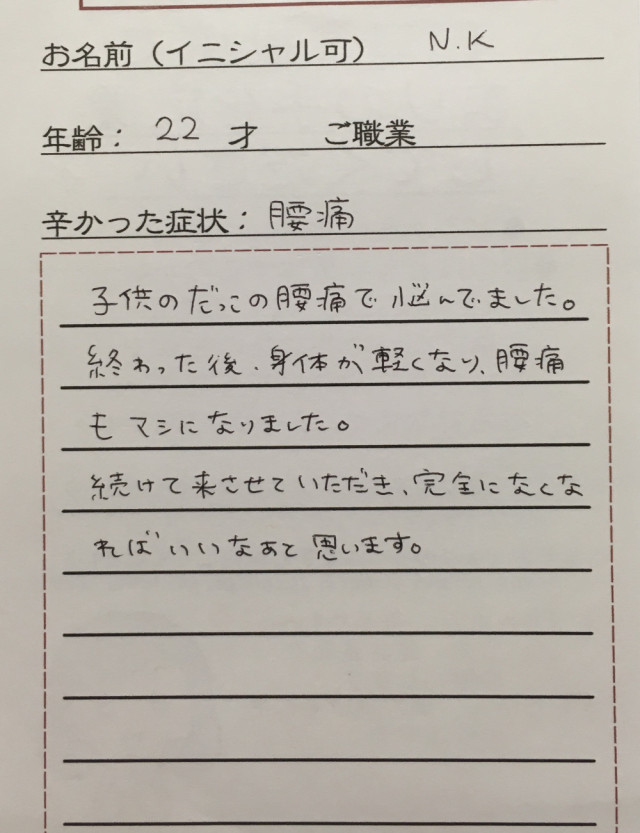 お名前（イニシャル可） N.K
年齢： 22 才 ご職業
辛かった症状：腰痛
子供のだっこの腰痛で悩んでました。
終わった後、身体が軽くなり、腰痛
もマシになりました。
続けて来させていただき、完全になくな
ればいいなぁと思います。